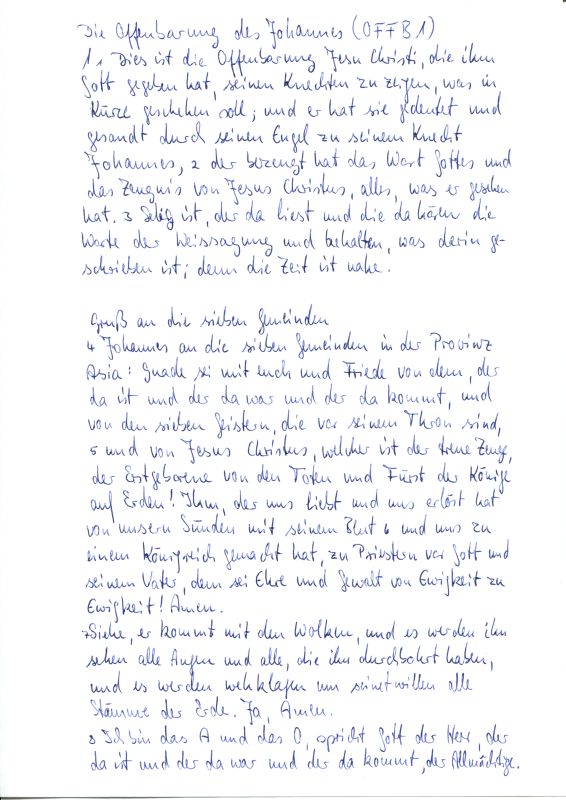 Die Offenbarung des Johannes (OFFB 1)
1 1 Dies ist die Offenbarung Jesu Christi, die ihm
Gott gegeben hat, seinen Knechten zu zeigen, was in
Kürze geschehen soll; und er hat sie gedeutet und
gesandt durch seinen Engel zu seinem Knecht
Johannes, 2 der bezeugt hat das Wort Gottes und
das Zeugnis von Jesus Christus, alles, was er gesehen
hat. 3 Selig ist, der da liest und die da hören die
Worte der Weissagung und behalten, was darin ge-
schrieben ist; denn die Zeit ist nahe.
Gruß an die sieben Gemeinden
4 Johannes an die sieben Gemeinden in der Provinz
Asia: Gnade sei mit euch und Friede von dem, der
da ist und der da war und der da kommt, und
von den sieben Geistern, die vor seinem Thron sind,
5 und von Jesus Christus, welcher ist der treue Zeuge,
der Erstgeborene von den Toten und Fürst der Könige
auf Erden! Ihm, der uns liebt und uns erlöst hat
von unsern Sünden mit seinem Blut 6 und uns zu
einem Königreich gemacht hat, zu Priestern vor Gott und
seinem Vater, dem sei Ehre und Gewalt von Ewigkeit zu
Ewigkeit! Amen.
7 Siehe, er kommt mit den Wolken, und es werden ihn
sehen alle Augen und alle, die ihn durchbohrt haben,
und es werden wehklagen um seinetwillen alle
Stämme der Erde. Ja, Amen.
8 Ich bin das A und das O, spricht Gott der Herr, der
da ist und der da war und der da kommt, der Allmächtige.